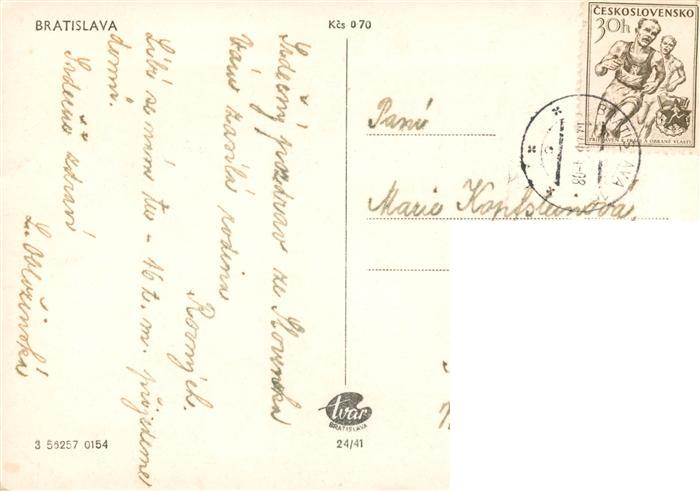 BRATISLAVA
Kčs 0·70
ČESKOSLOVENSKO
30h
PŘIPRAVEN K PRÁCI A OBRANĚ VLASTI
BRATISLAVA
Srdečný pozdrav ze Slovenska
Vám zasílá rodina
Rovných.
Líbí se nám tu - 16 t. m. přijedeme
domů.
Srdečně zdraví
Paní
Marie Kopfsteinová
tvar
BRATISLAVA
24/41
3 56257 0154